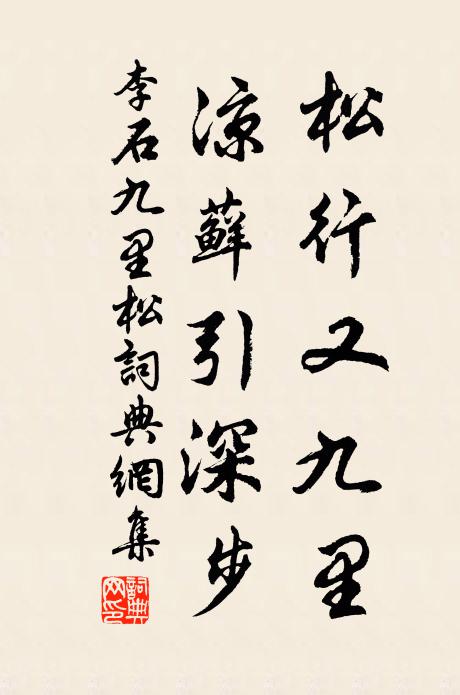 松行又九里
涼蘚引深步
李石九里松詞典網集
詞典網印